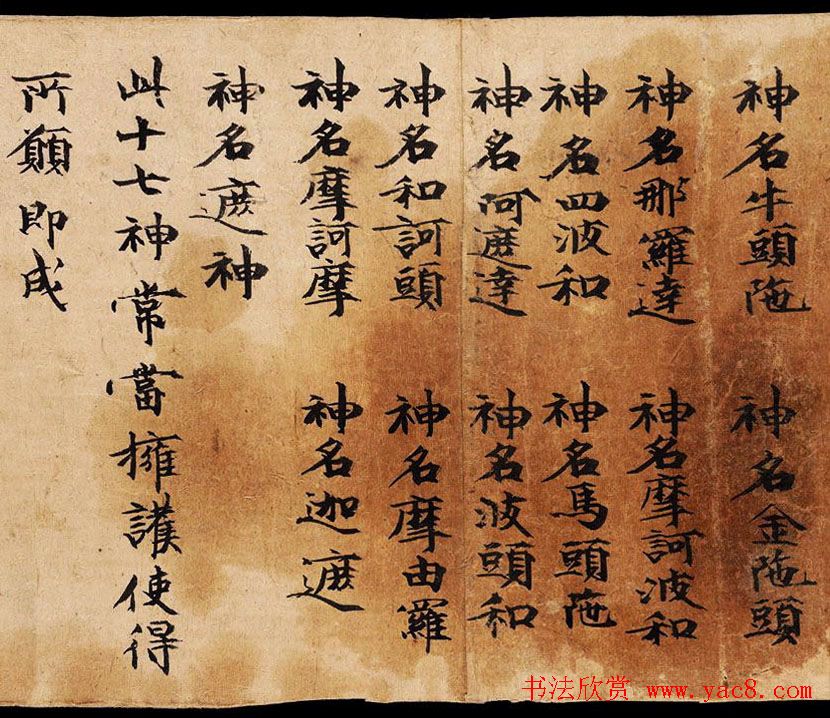 神名牛頭陁　神名金陁頭
神名那羅達　神名摩訶波和
神名四波和　神名馬頭陁
神名阿遮達　神名波頭和
神名和訶頭　神名摩由羅
神名摩訶摩　神名迦遮
神名遮神
此十七神常當擁護使得
所願即成
书法欣赏 www.yac8.com